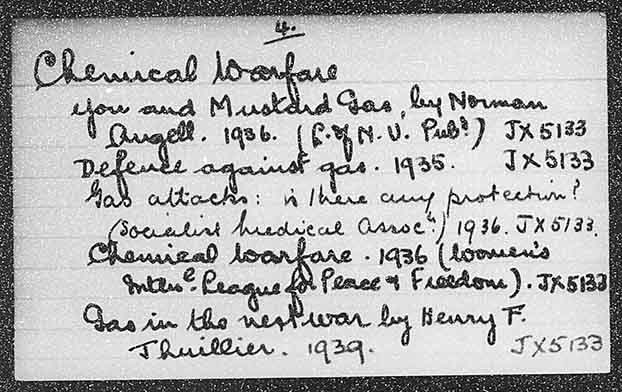 4.
Chemical Warfare
You and Mustard Gas, by Norman
Angell. 1936. (L. of N. U. Pubn.) JX5133
Defence against gas. 1935. JX5133
Gas attacks: is there any protection?
(Socialist Medical Assocn.) 1936. JX5133.
Chemical Warfare. 1936 (Women's
Intern. League for Peace & Freedom). JX5133
Gas in the next war by Henry F.
Thuillier. 1939. JX5133